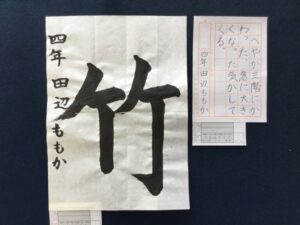 竹
四年 田辺ももか
へやが三階にか
わった、急に大き
くなった気がして
くる
四年 田辺ももか